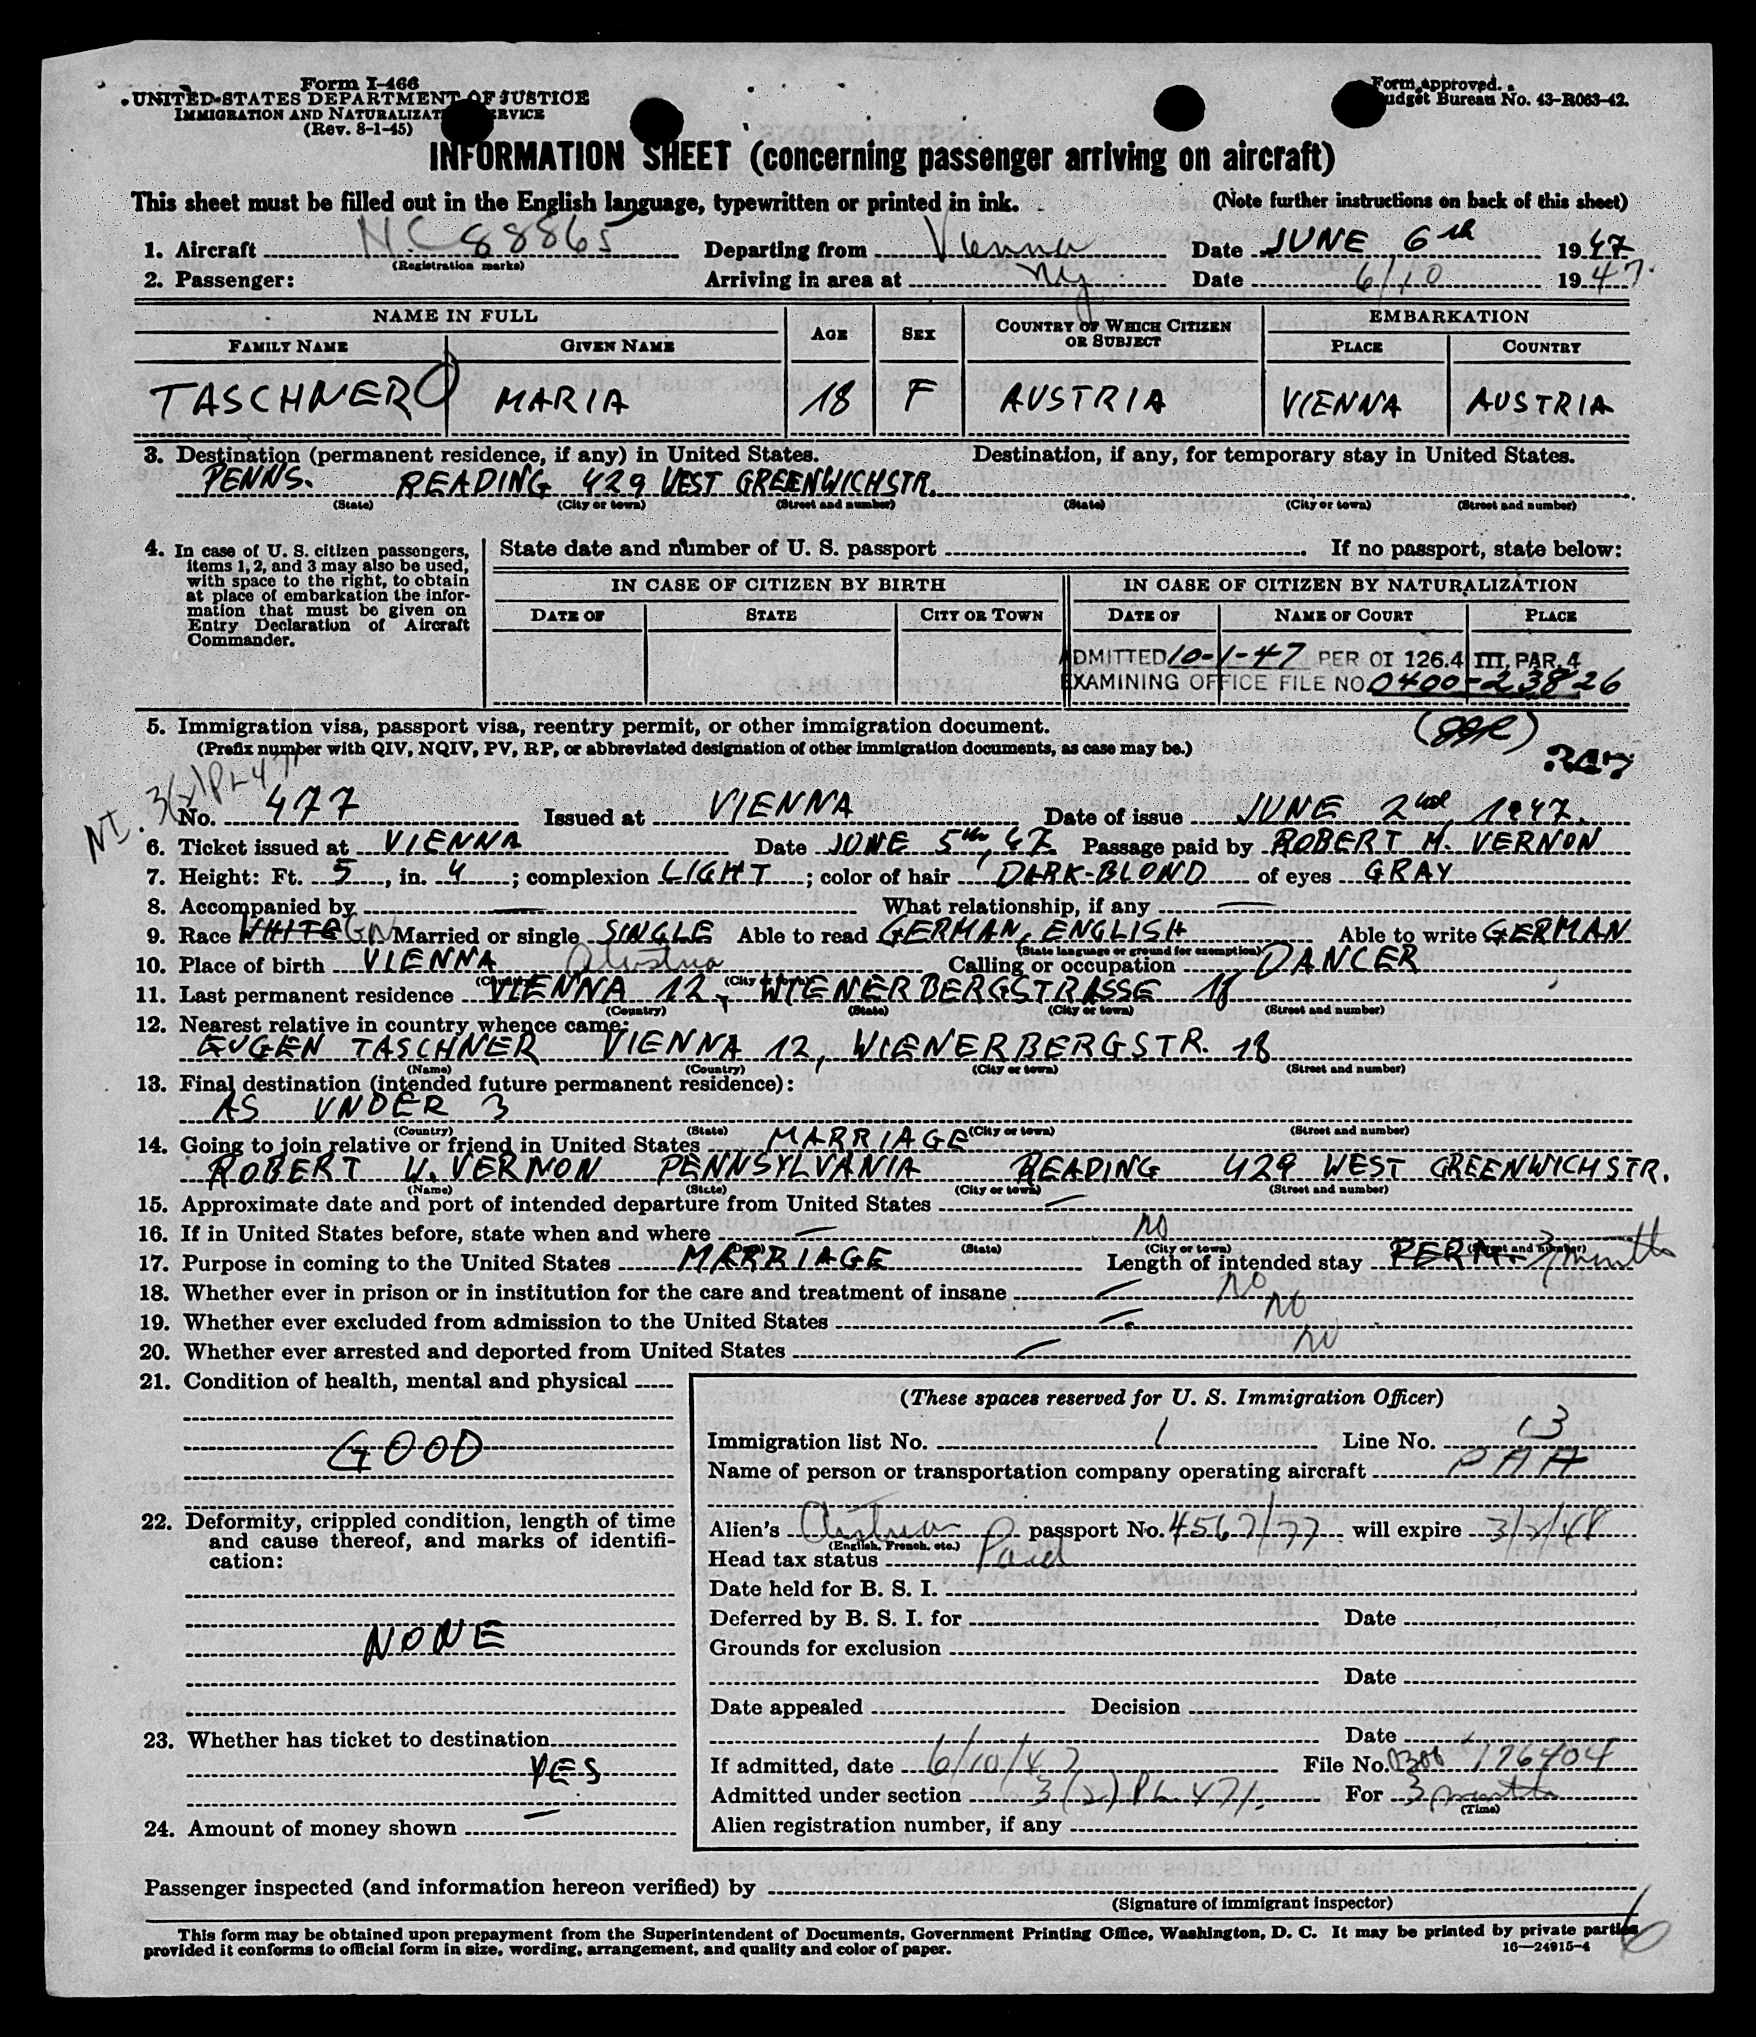 Form I-466
UNITED STATES DEPARTMENT OF JUSTICE
IMMIGRATION AND NATURALIZATION SERVICE
(Rev. 8-1-45)
Form approved.
Budget Bureau No. 43-R063-42.
INFORMATION SHEET (concerning passenger arriving on aircraft)
This sheet must be filled out in the English language, typewritten or printed in ink. (Note further instructions on back of this sheet)
1. Aircraft NC 88865 Departing from Vienna Date JUNE 6th 1947
(Registration marks)
2. Passenger: Arriving in area at NY Date 6/10 1947.
NAME IN FULL AGE SEX COUNTRY OF WHICH CITIZEN OR SUBJECT EMBARKATION
FAMILY NAME GIVEN NAME PLACE COUNTRY
TASCHNER MARIA 18 F AUSTRIA VIENNA AUSTRIA
3. Destination (permanent residence, if any) in United States. Destination, if any, for temporary stay in United States.
PENNS. READING 429 WEST GREENWICHSTR.
(State) (City or town) (Street and number) (State) (City or town) (Street and number)
4. In case of U. S. citizen passengers, items 1, 2, and 3 may also be used, with space to the right, to obtain at place of embarkation the information that must be given on Entry Declaration of Aircraft Commander.
State date and number of U. S. passport If no passport, state below:
IN CASE OF CITIZEN BY BIRTH IN CASE OF CITIZEN BY NATURALIZATION
DATE OF STATE CITY OR TOWN DATE OF NAME OF COURT PLACE
ADMITTED 10-1-47 PER OI 126.4 III, PAR. 4
EXAMINING OFFICE FILE NO. 0400-23826
5. Immigration visa, passport visa, reentry permit, or other immigration document.
(Prefix number with QIV, NQIV, PV, RP, or abbreviated designation of other immigration documents, as case may be.)
NI. 3(2)PL 471
No. 477 Issued at VIENNA Date of issue JUNE 2nd, 1947.
6. Ticket issued at VIENNA Date JUNE 5th, 47 Passage paid by ROBERT M. VERNON
7. Height: Ft. 5, in. 4; complexion LIGHT; color of hair DARK-BLOND of eyes GRAY
8. Accompanied by — What relationship, if any —
9. Race WHITE Married or single SINGLE Able to read GERMAN, ENGLISH Able to write GERMAN
(State language or ground for exemption)
10. Place of birth VIENNA Austria Calling or occupation DANCER
11. Last permanent residence VIENNA 12, WIENERBERGSTRASSE 18
(Country) (State) (City or town) (Street and number)
12. Nearest relative in country whence came:
EUGEN TASCHNER VIENNA 12, WIENERBERGSTR. 18
(Name) (Country) (City or town) (Street and number)
13. Final destination (intended future permanent residence):
AS UNDER 3
(Country) (State) (City or town) (Street and number)
14. Going to join relative or friend in United States MARRIAGE
ROBERT W. VERNON PENNSYLVANIA READING 429 WEST GREENWICHSTR.
(Name) (State) (City or town) (Street and number)
15. Approximate date and port of intended departure from United States —
16. If in United States before, state when and where — no
(State) (City or town) (Street and number)
17. Purpose in coming to the United States MARRIAGE Length of intended stay PERM. 3 months
18. Whether ever in prison or in institution for the care and treatment of insane — no
19. Whether ever excluded from admission to the United States — no
20. Whether ever arrested and deported from United States — no
21. Condition of health, mental and physical
GOOD
22. Deformity, crippled condition, length of time and cause thereof, and marks of identification:
NONE
23. Whether has ticket to destination
YES
24. Amount of money shown —
(These spaces reserved for U. S. Immigration Officer)
Immigration list No. 1 Line No. 13
Name of person or transportation company operating aircraft PAA
Alien's Austrian passport No. 4567/77 will expire 3/2/48
(English, French, etc.)
Head tax status Paid
Date held for B. S. I.
Deferred by B. S. I. for Date
Grounds for exclusion
Date
Date appealed Decision
Date
If admitted, date 6/10/47 File No. 0300 176404
Admitted under section 3(2) PL 471. For 3 months
(Time)
Alien registration number, if any
Passenger inspected (and information hereon verified) by
(Signature of immigrant inspector)
This form may be obtained upon prepayment from the Superintendent of Documents, Government Printing Office, Washington, D. C. It may be printed by private parties
provided it conforms to official form in size, wording, arrangement, and quality and color of paper.
16—24915-4